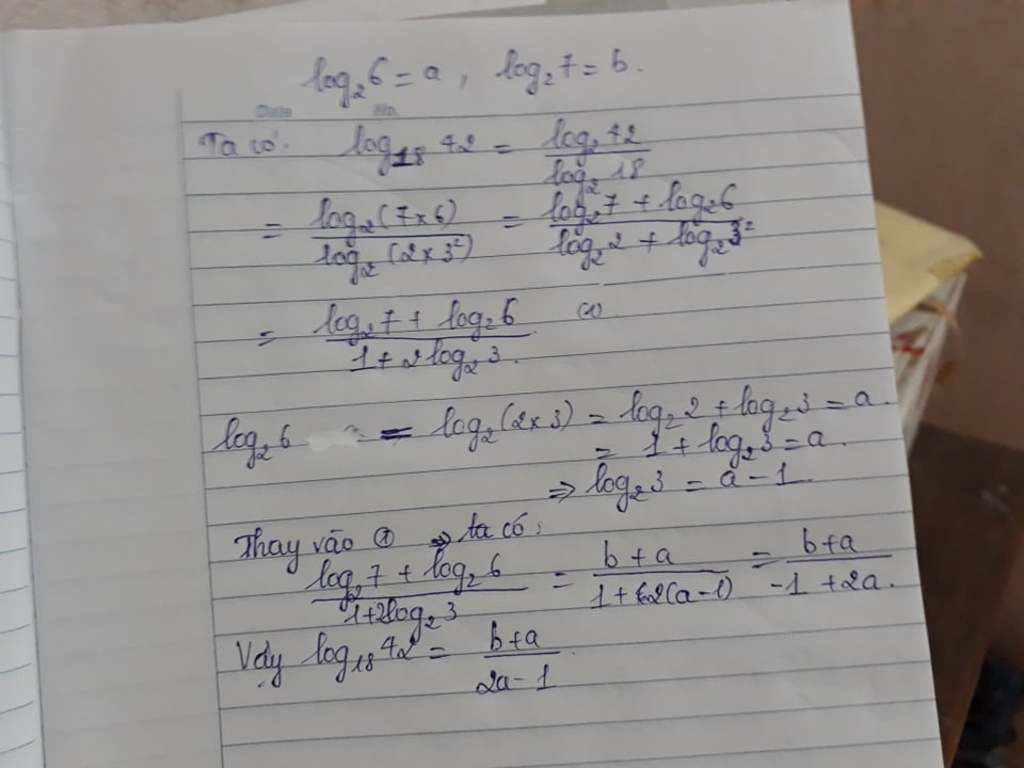 log₂6 = a, log₂7 = b.
Date No.
Ta có: log₁₈ 42 = log₂ 42 / log₂ 18
= log₂(7×6) / log₂(2×3²) = (log₂7 + log₂6) / (log₂2 + log₂3²)
= (log₂7 + log₂6) / (1 + 2log₂3). (1)
log₂6 = log₂(2×3) = log₂2 + log₂3 = a.
= 1 + log₂3 = a.
⇒ log₂3 = a - 1.
Thay vào ① ⇒ ta có:
(log₂7 + log₂6) / (1+2log₂3) = (b + a) / (1 + 2(a-1)) = (b+a) / (-1 + 2a).
Vậy log₁₈42 = (b+a) / (2a-1)